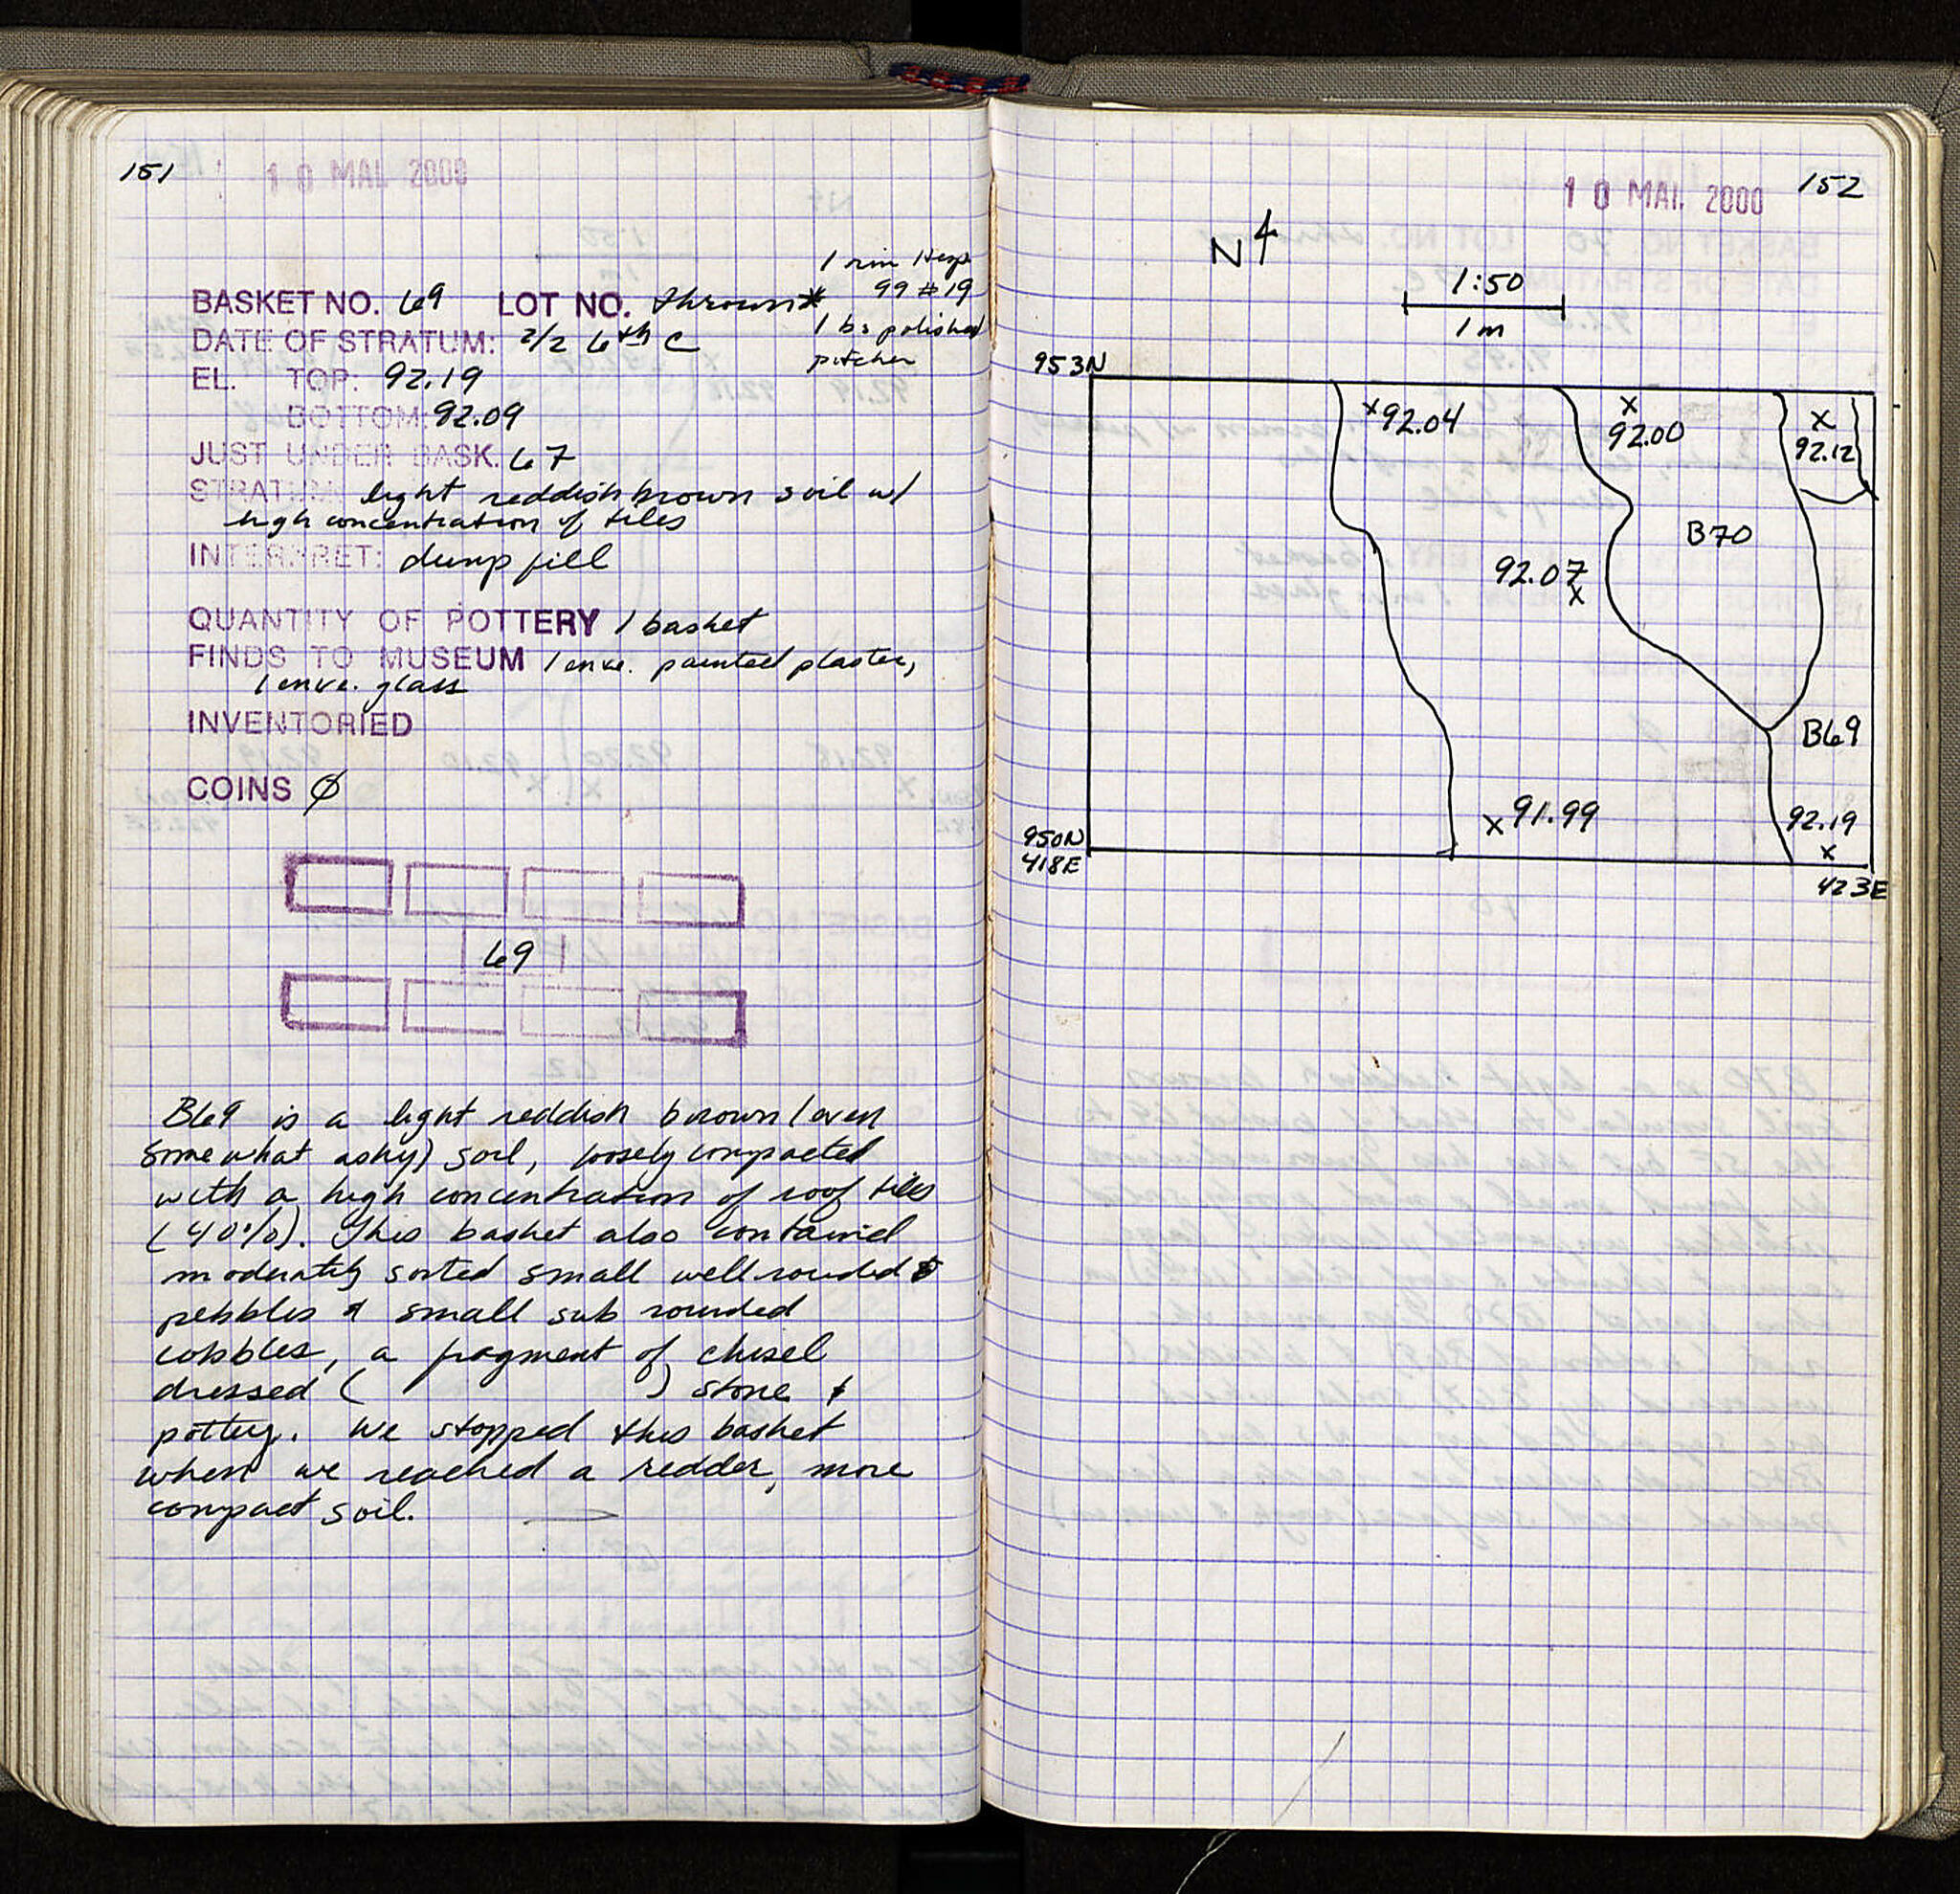 151
10 MAI. 2000
1 rim Hesp.
99 #19
1 bs polished
pitcher
BASKET NO. 69 LOT NO. thrown*
DATE OF STRATUM: 2/2 6th C
EL. TOP: 92.19
BOTTOM: 92.09
JUST UNDER BASK. 67
STRATUM light reddish brown soil w/
high concentration of tiles
INTERPRET: dump fill
QUANTITY OF POTTERY 1 basket
FINDS TO MUSEUM 1 enve. painted plaster,
1 enve. glass
INVENTORIED
COINS Ø
69
B69 is a light reddish brown (even
somewhat ashy) soil, loosely compacted
with a high concentration of roof tiles
(40%). This basket also contained
moderately sorted small well rounded
pebbles & small sub rounded
cobbles, a fragment of chisel
dressed ( ) stone &
pottery. We stopped this basket
when we reached a redder, more
compact soil.
10 MAI. 2000
152
N
1:50
1 m
953N
x 92.04
x
92.00
x
92.12
B70
92.07
x
B69
x 91.99
92.19
x
950N
418E
423E